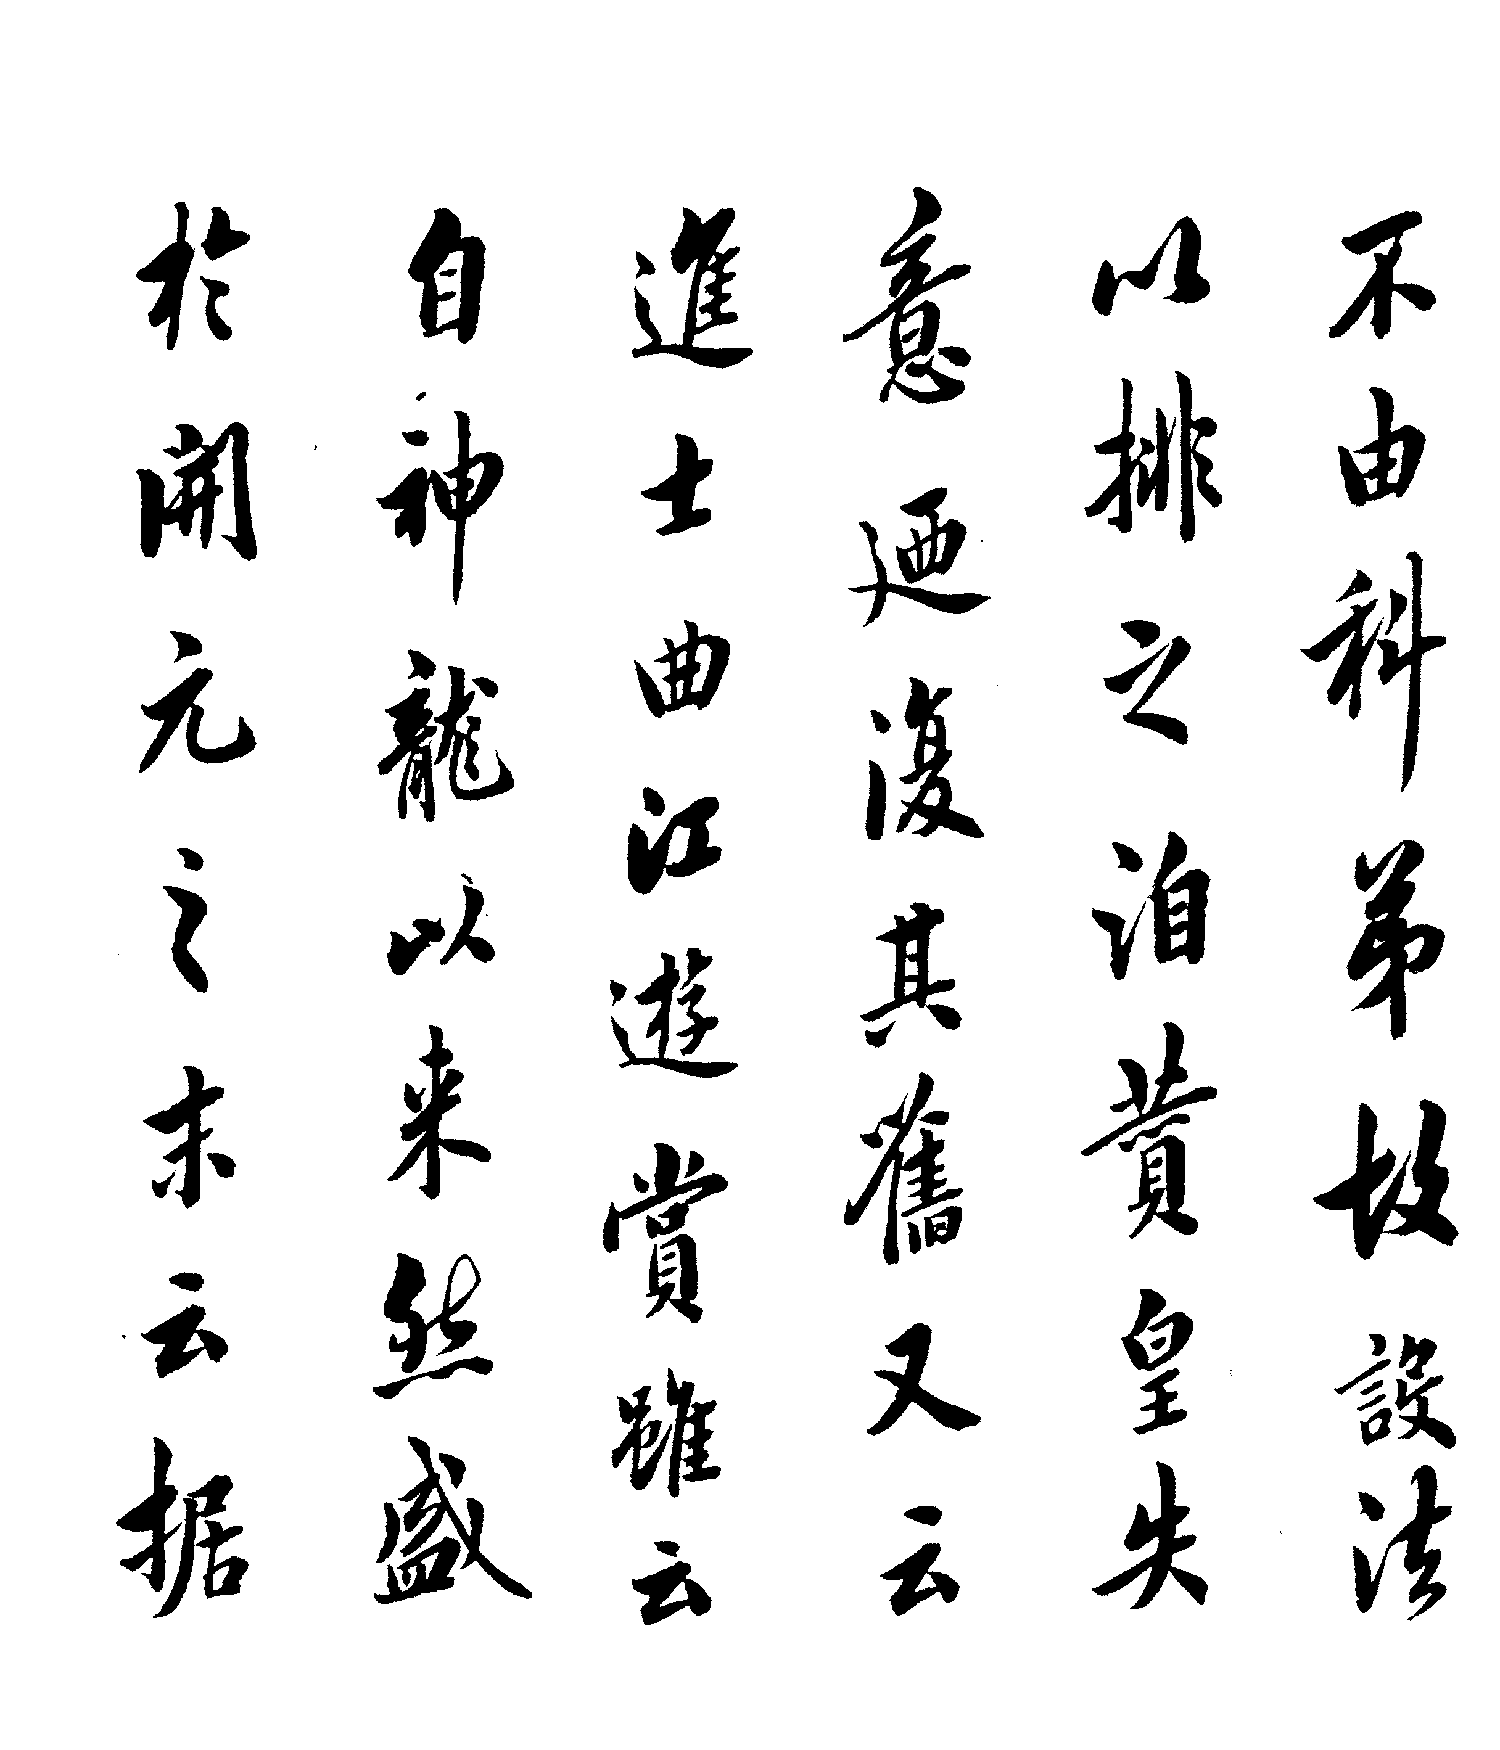 不由科第故設法
以排之洎賁皇失
意廼復其舊又云
進士曲江遊賞雖云
自神龍以来然盛
於開元之末云据